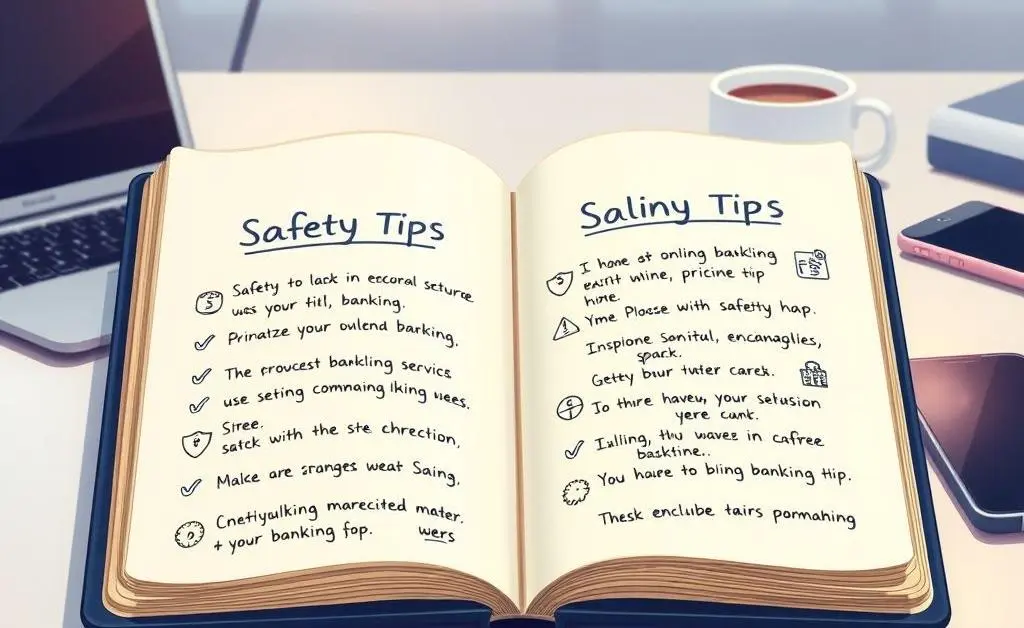 Safety Tips
Safety to lack in eccoral scturce
uses your titl, banking.
Prinatze your oulend barking.
The crovcest bankling servics
use seting commaning lking uees.
Stree.
satck with the ste chrection.
Make are sranges weat Saing.
Cnetlyulking marecited mater.
+ your banking fop. wers
Saliny Tips
I hone at onling baskling
exist wline, pricine tip
hire.
Yme Plocse with safetly hap.
Inspione Sonitul, encanaglies,
spack.
Getty bur tuter carek.
To thire haveu, your setusion
yere cank.
Iulling, thu wavez in cafree
basktine..
You haire to bling banking tip.
Thesk enclube tairs pormahing